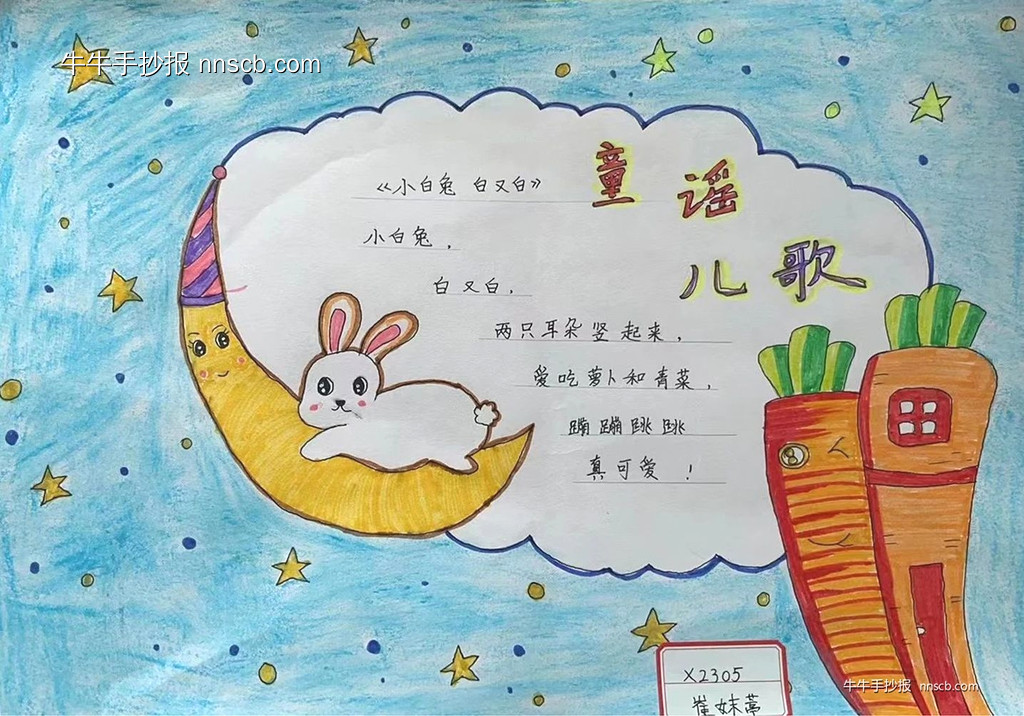 牛牛手抄报 nnscb.com
童谣
儿歌
《小白兔 白又白》
小白兔，
白又白，
两只耳朵竖起来，
爱吃萝卜和青菜，
蹦蹦跳跳
真可爱！
8
X2305
牛牛手抄报 nnscb.com